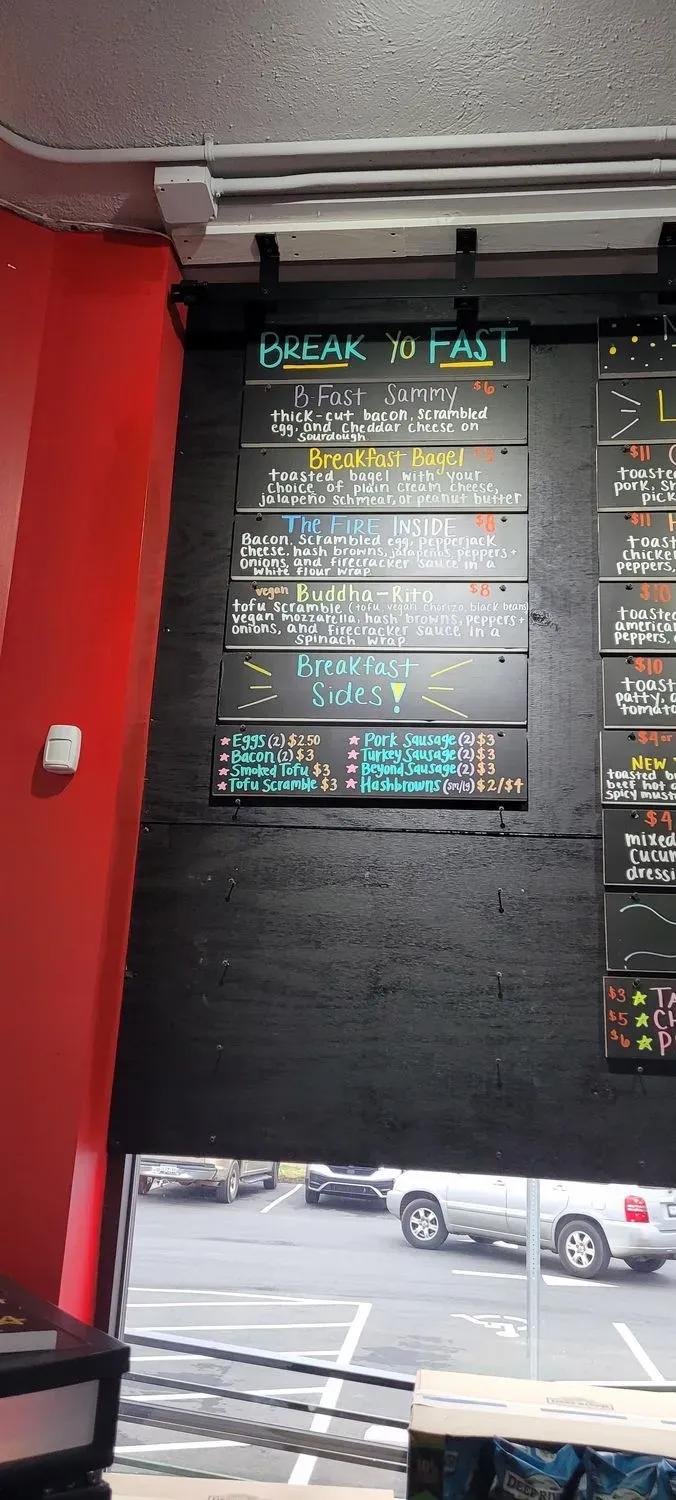 BREAK YO FAST
B-Fast Sammy $6
thick-cut bacon, scrambled
egg, and cheddar cheese on
sourdough
Breakfast Bagel $3
toasted bagel with your
choice of plain cream cheese,
jalapeño schmear, or peanut butter
The FIRE INSIDE $8
Bacon, scrambled egg, pepperjack
cheese, hash browns, jalapeños, peppers +
onions, and firecracker sauce in a
white flour wrap
vegan Buddha-Rito $8
tofu scramble (tofu, vegan chorizo, black beans)
vegan mozzarella, hash browns, peppers +
onions, and firecracker sauce in a
spinach wrap
Breakfast
Sides!
Eggs (2) $2.50
Bacon (2) $3
Smoked Tofu $3
Tofu Scramble $3
Pork Sausage (2) $3
Turkey Sausage (2) $3
Beyond Sausage (2) $3
Hashbrowns (sm/lg) $2/$4
N
L
$11
toasted
pork, s
pick
$11 H
toast
chicke
peppers,
$10
toaste
america
peppers,
$10
toast
patty, a
tomato
$4 or
NEW
toasted b
beef hot d
spicy must
$4
mixed
cucu
dressi
$3 TA
$5 CH
$6 P
DEEP RIV